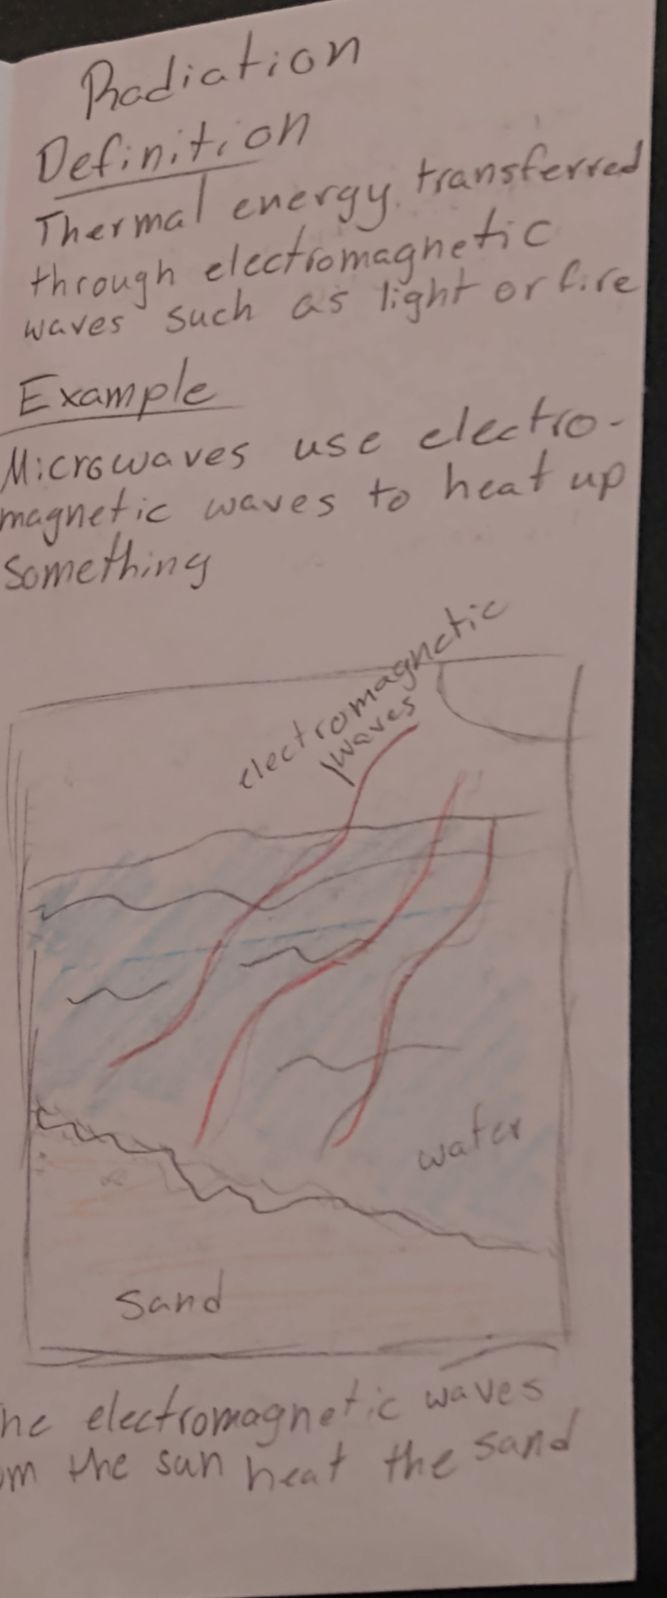 Radiation
Definition
Thermal energy transferred
through electromagnetic
waves such as light or fire
Example
Microwaves use electro-
magnetic waves to heat up
something
electromagnetic
waves
water
Sand
he electromagnetic waves
om the sun heat the sand